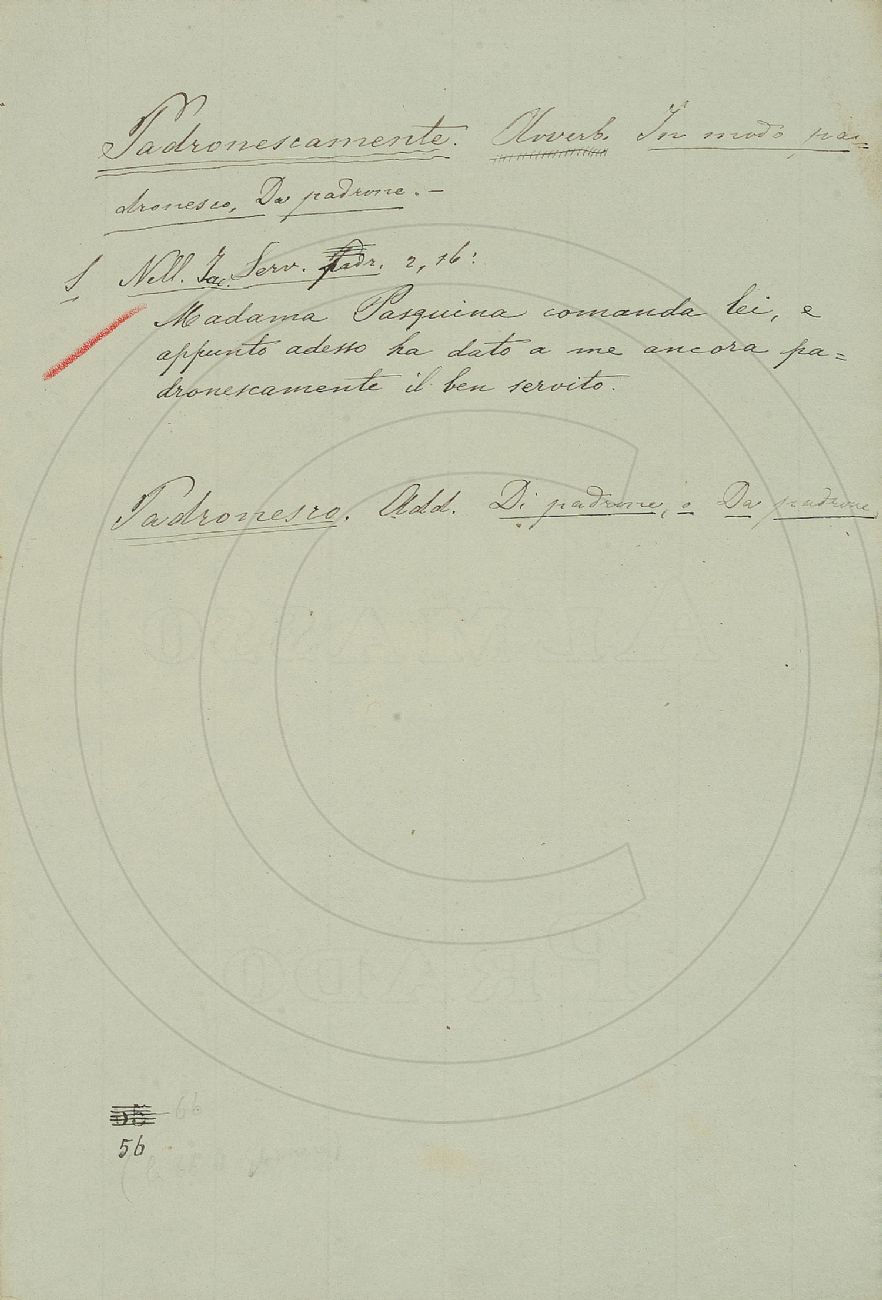 Padronescamente. Avverb. In modo pa=
dronesco, Da padrone. –
§ Nell. Iac. Serv. Padr. 2, 16:
Madama Pasquina comanda lei, e
appunto adesso ha dato a me ancora pa=
dronescamente il ben servito.
Padronesco. Add. Di padrone, o Da padrone
66
56